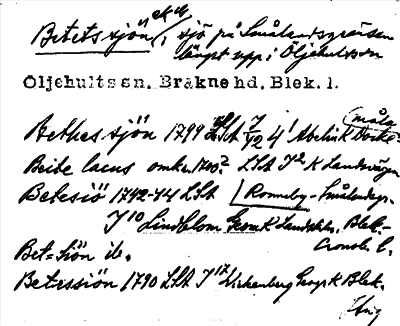 Betetssjön, sjö på Smålandsgränsen
längst upp i Öljehultssn
Öljehults sn. Bräkne hd. Blek. l.
Bethes sjön 1799 LSA
Beite lacus omkr. 1700? LSA J² K Landsvägen
Betesiö 1742-44 LSA Ronneby - Smålandsgr.
J¹⁰ Lindblom Geom K Landskb. Blek-
Bet=siön ib.
Betessiön 1790 LSA J¹⁷ Wickenberg Geogr K Blek.